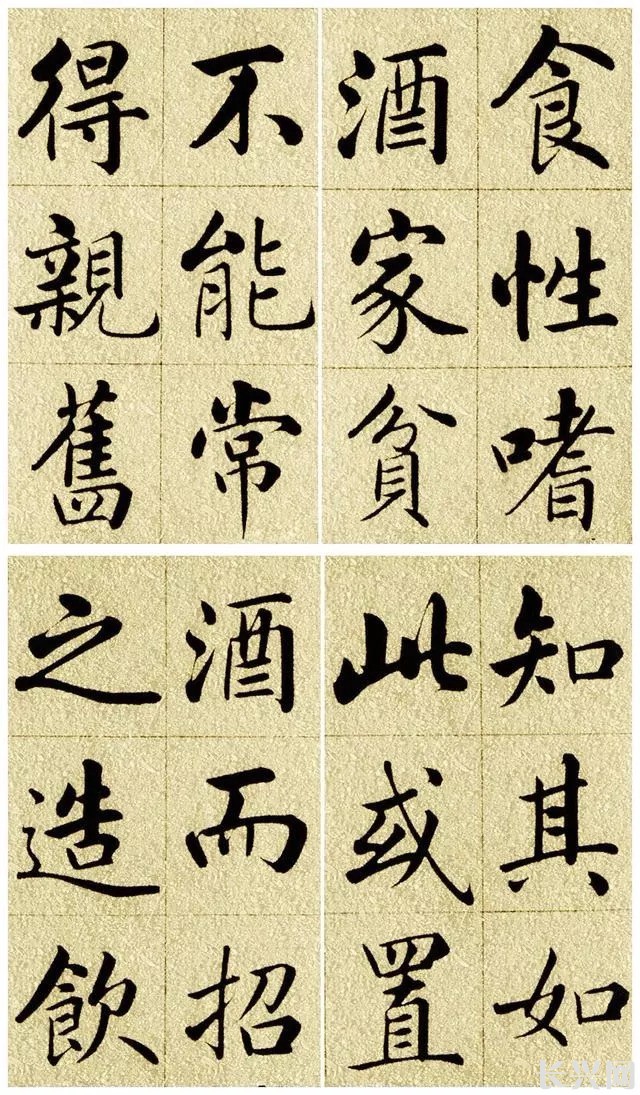 食性嗜
酒家貧
不能常
得親舊
知其如
此或置
酒而招
之造飲
长兴网